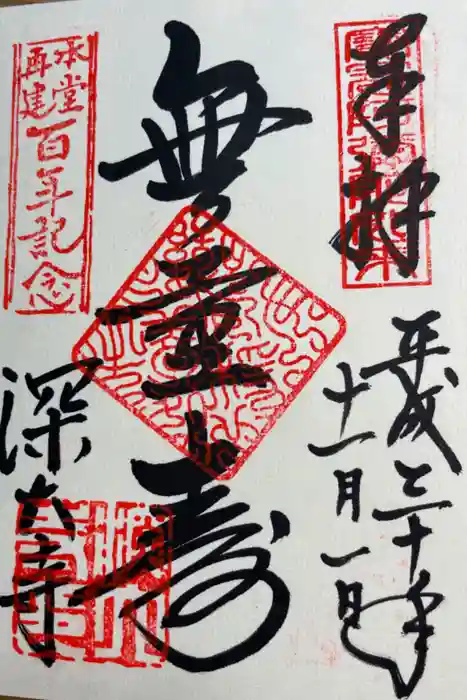 奉拝
平成三十年
十一月一日
無量寿
本堂
再建
百年記念
深大寺